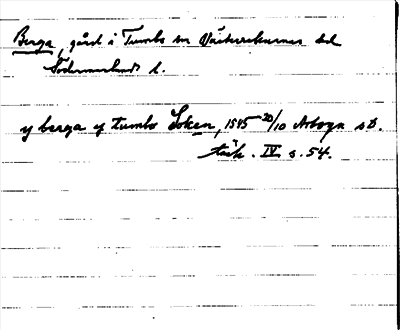 Berga, gård i Tumbo sn Västerrekarnes hd
Södermanlands l.
y berga y tumbo Soken, 1545 20/10 Arboga st.
tänk. IV s. 54.